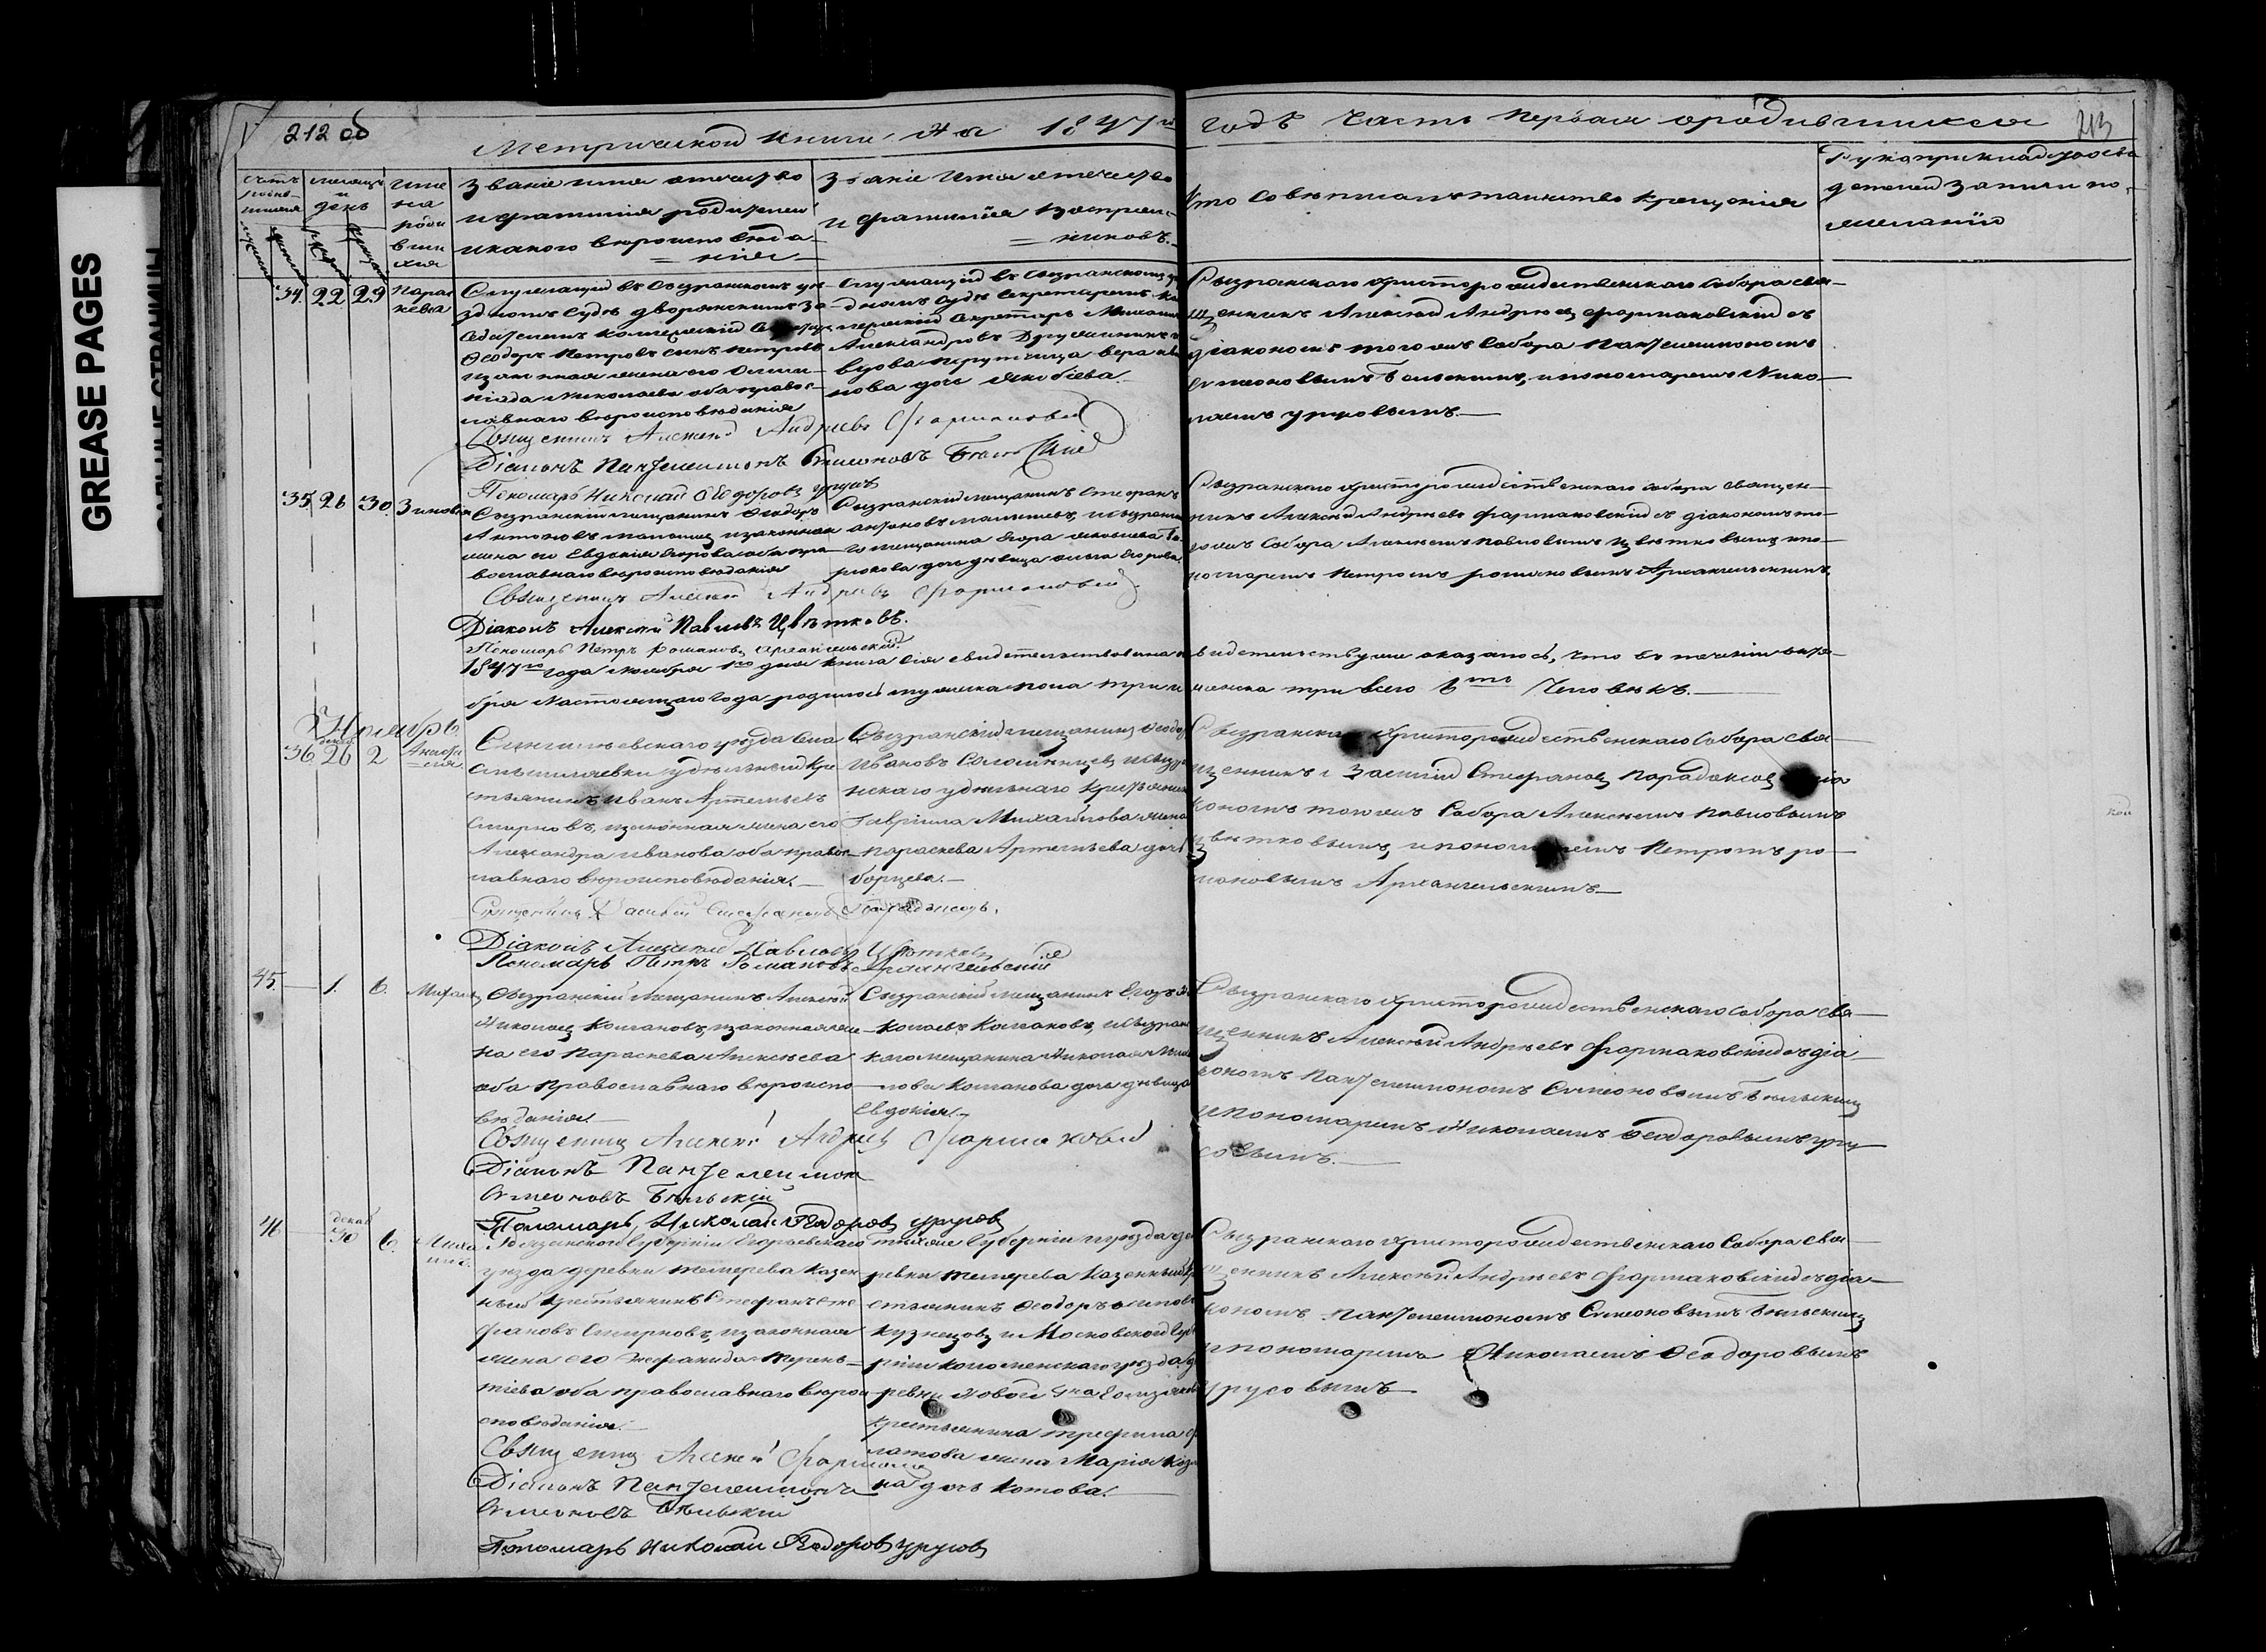 GREASE PAGES
212 об
Метрической книги на 1847й годъ часть первая о родившихся
213
Счетъ родив-шихся
месяцъ и день
имя родившихся
Званіе имя отечество
и фамилія родителей
и какого вероисповеда-
нія
Званіе имя отечество
и фамилія воспріем-
никовъ.
Кто совершалъ таинство крещенія
Рукоприкладство сви
детелей записи по
желанію
34. 22 29 Парас
кева
Служащій въ Сызранскомъ уе-
здномъ Суде дворянскимъ За-
седателемъ коллежскій
Ѳеодоръ Петровъ сынъ Петровъ
и законная жена его Олим-
піада Николаева оба правос-
лавнаго вероисповеданія
Служащій въ Сызранскомъ
дномъ Суде Секретаремъ
Секретарь
Александровъ
вдова
нова дочь
Сызранскаго Христорождественскаго Собора свя-
щенникъ Алексей Андреевъ Фармаковскій съ
діакономъ того же Собора Пантелеимономъ
Симеоновымъ Бельскимъ, и пономаремъ Нико-
лаемъ Урусовымъ.
Священникъ Алексей Андреевъ Фармаковскій
Діаконъ Пантелеимонъ Симеоновъ Бельскій
Пономарь Николай Ѳедоровъ Урусовъ
35. 26 30. Зиновія
Сызранскій мещанинъ Ѳеодоръ
Антоновъ и законная
жена его Евдокія Егорова оба пра-
вославнаго вероисповеданія
Сызранскій мещанинъ Стефанъ
Антоновъ и Сызран
го мещанина Егора
дочь девица Егорова
Сызранскаго Христорождественскаго Собора священ-
никъ Алексей Андреевъ Фармаковскій съ діакономъ то-
го же Собора Алексеемъ Павловымъ Цветковымъ и по-
номаремъ Петромъ Романовымъ Архангельскимъ.
Священникъ Алексей Андреевъ Фармаковскій
Діаконъ Алексей Павловъ Цветковъ.
Пономарь Петръ Романовъ Архангельскій.
1847го года Ноября 1го дня книга сія свидетельствована и по
свидетельству оказалось, что въ теченіи октя-
бря настоящаго года родилось мужеска пола три и женска три всего 6ть человекъ.
Ноябрь
36. 26 2 Анаста
сія.
Сенгилеевскаго уезда села
удельный кре
стьянинъ Иванъ Артемьевъ
Смирновъ, и законная жена его
Александра Иванова оба правос-
лавнаго вероисповеданія.
Сызранскій мещанинъ Ѳеодоръ
Ивановъ и Сызра
нскаго удельнаго крестьянина
Гавріила Михайлова жена
Параскева Артемьева дочь
борцева.
Сызранскаго Христорождественскаго Собора свя-
щенникъ Василій Стефановъ Парадоксовъ съ діа
кономъ того же Собора Алексеемъ Павловымъ
Цветковымъ, и пономаремъ Петромъ Ро-
мановымъ Архангельскимъ
Священникъ Василій Стефановъ Парадоксовъ.
Діаконъ Алексей Павловъ Цветковъ
Пономарь Петръ Романовъ Архангельскій
45. 1. 6. Михаилъ
Сызранскій мещанинъ Алексей
Николаевъ Колгановъ, и законная же-
на его Параскева Алексеева
оба православнаго вероиспо-
веданія.
Сызранскій мещанинъ Егоръ Ни
колаевъ Колгановъ, и Сызранс
каго мещанина Николая
Колганова дочь девица
Евдокія.
Сызранскаго Христорождественскаго Собора свя-
щенникъ Алексей Андреевъ Фармаковскій съ діа-
кономъ Пантелеимономъ Симеоновымъ Бельскимъ
и пономаремъ Николаемъ Ѳеодоровымъ Уру-
совымъ.
Священникъ Алексей Андреевъ Фармаковскій
Діаконъ Пантелеимонъ
Симеоновъ Бельскій
Пономарь Николай Ѳедоровъ Урусовъ
46 декаб
30 6. Миха
илъ.
Рязанской Губерніи Егорьевскаго
уезда деревни Темерева казен
ный крестьянинъ Стефанъ Сте
фановъ Смирновъ, и законная
жена его Терень-
тіева оба православнаго верои-
споведанія.
Той же Губерніи и уезда де
ревни Темерева казенный кре
стьянинъ Ѳеодоръ
Кузнецовъ и Московской Губе
рніи Коломенскаго уезда де
ревни Новой
крестьянина Трефила
жена Марія
на дочь Котова.
Сызранскаго Христорождественскаго Собора свя-
щенникъ Алексей Андреевъ Фармаковскій съ діа-
кономъ Пантелеимономъ Симеоновымъ Бельскимъ
и пономаремъ Николаемъ Ѳеодоровымъ
Урусовымъ
Священникъ Алексей Фармаков
Діаконъ Пантелеимонъ
Симеоновъ Бельскій
Пономарь Николай Ѳедоровъ Урусовъ